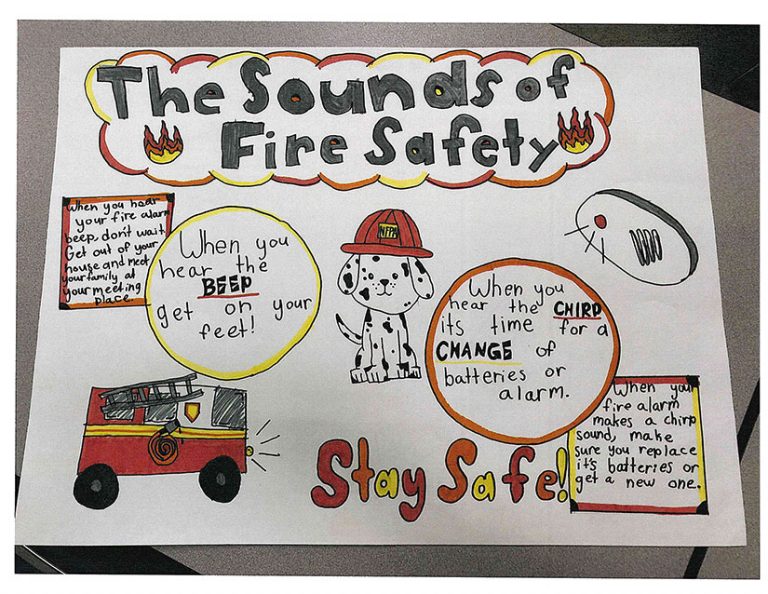 The Sounds of
Fire Safety
When you hear
your fire alarm
beep, don't wait.
Get out of your
house and meet
your family at
your meeting
place.
When you
hear the
BEEP
get on your
feet!
NFPA
When you
hear the CHIRP
its time for a
CHANGE of
batteries or
alarm.
When your
fire alarm
makes a chirp
sound, make
sure you replace
it's batteries or
get a new one.
Stay Safe!